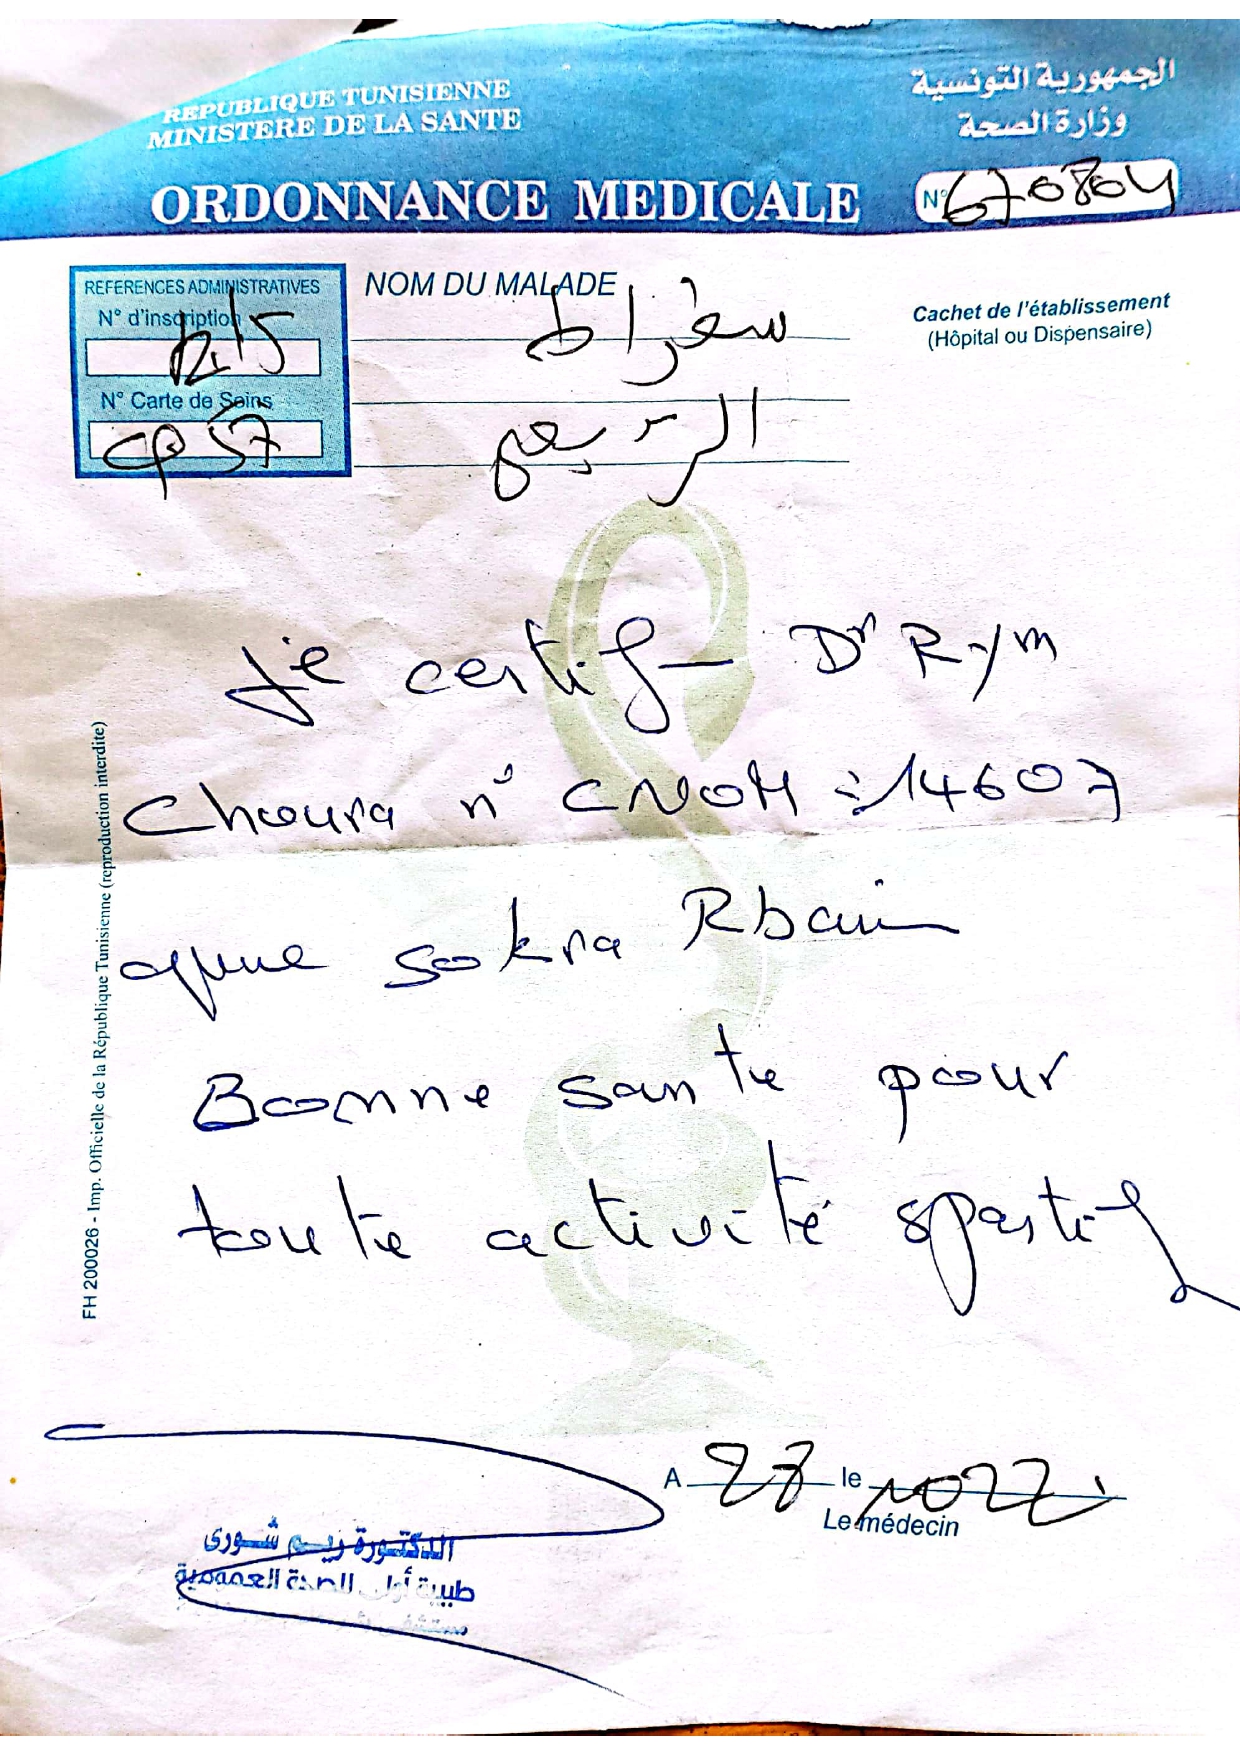 REPUBLIQUE TUNISIENNE
MINISTERE DE LA SANTE
الجمهورية التونسية
وزارة الصحة
ORDONNANCE MEDICALE
N° 670804
REFERENCES ADMINISTRATIVES
N° d'inscription
N° Carte de Soins
57
NOM DU MALADE
سقراط
الربعي
Cachet de l'établissement
(Hôpital ou Dispensaire)
Je certif Dr Rym
Choura n° CNOM : 14607
que sokra Rbai
Bonne sante pour
toute activité sportif
FH 200026 - Imp. Officielle de la République Tunisienne (reproduction interdite)
A 27 le 1022
Le médecin
الدكتورة ريم شورى
طبيبة أولى للصحة العمومية
مستشفى